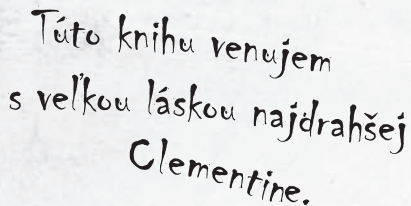 Túto knihu venujem
s veľkou láskou najdrahšej
Clementine.